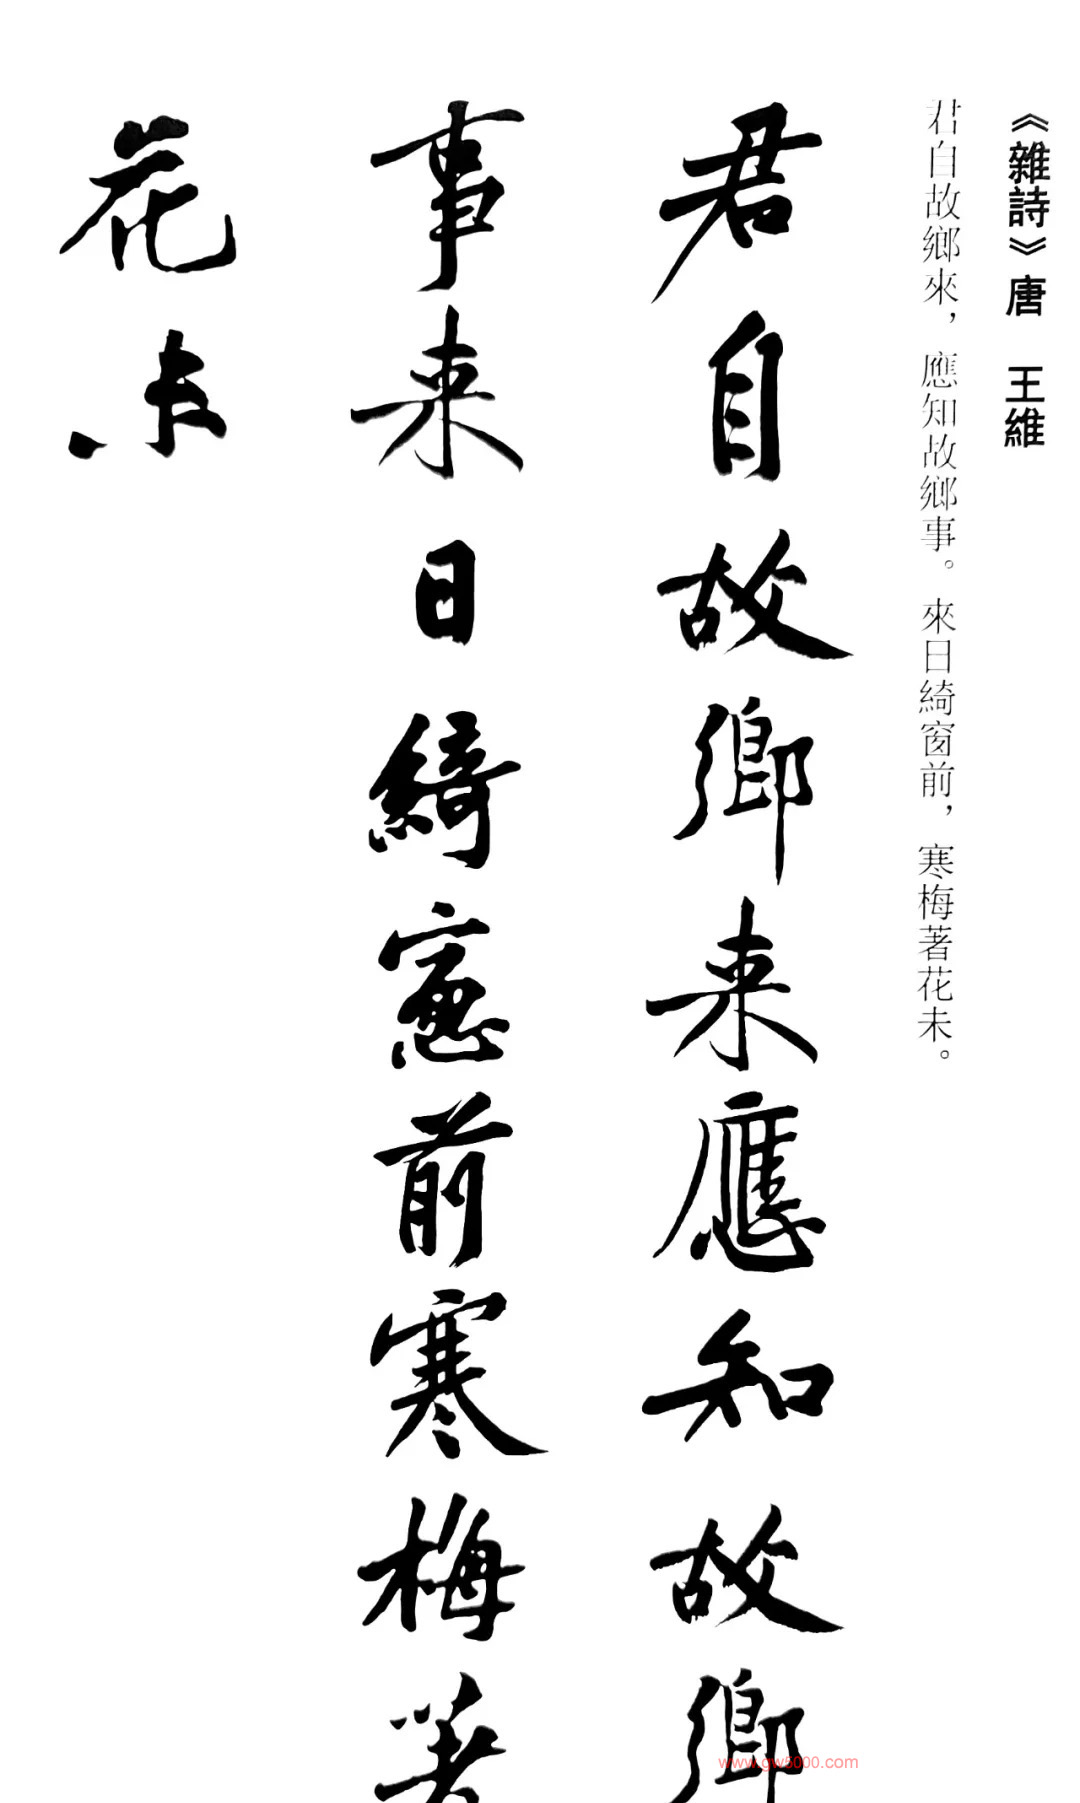 《雜詩》唐　王維
君自故鄉來，應知故鄉事。來日綺窗前，寒梅著花未。
君自故鄉来應知故鄉
事来日綺窓前寒梅著
花未
www.gw5000.com